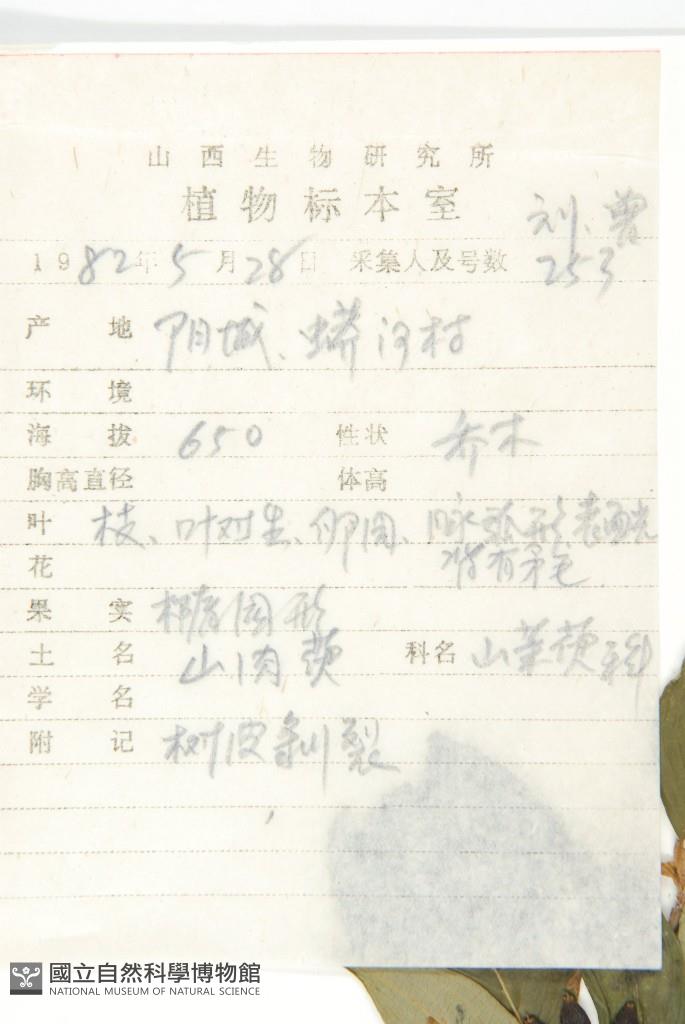 山西生物研究所
植物标本室
刘、曾
1982年5月28日 采集人及号数 253
产地 阳城、蟒河村
环境
海拔 650 性状 乔木
胸高直径 体高
叶 枝、叶对生、卵圆、脉弧形 表面光
背有柔毛
花
果实 椭圆形
土名 山肉萸 科名 山茱萸科
学名
附记 树皮剥裂
國立自然科學博物館
NATIONAL MUSEUM OF NATURAL SCIENCE